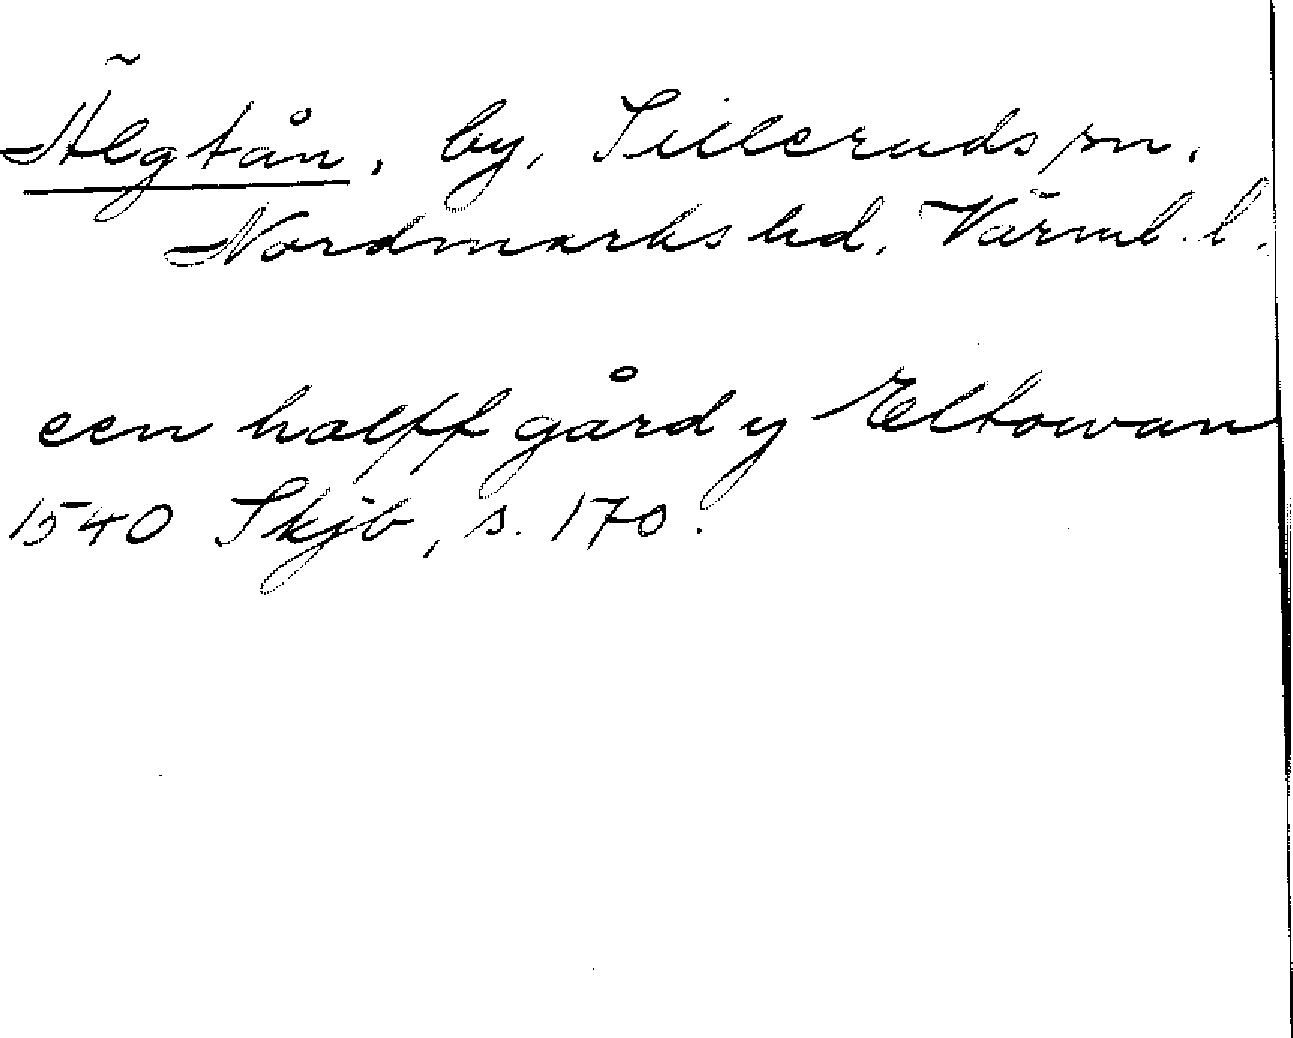 Älgtån, by, Silleruds sn,
Nordmarks hd, Värml. l.
een halff gård y Eltowan
1540 Skjb, s. 170.